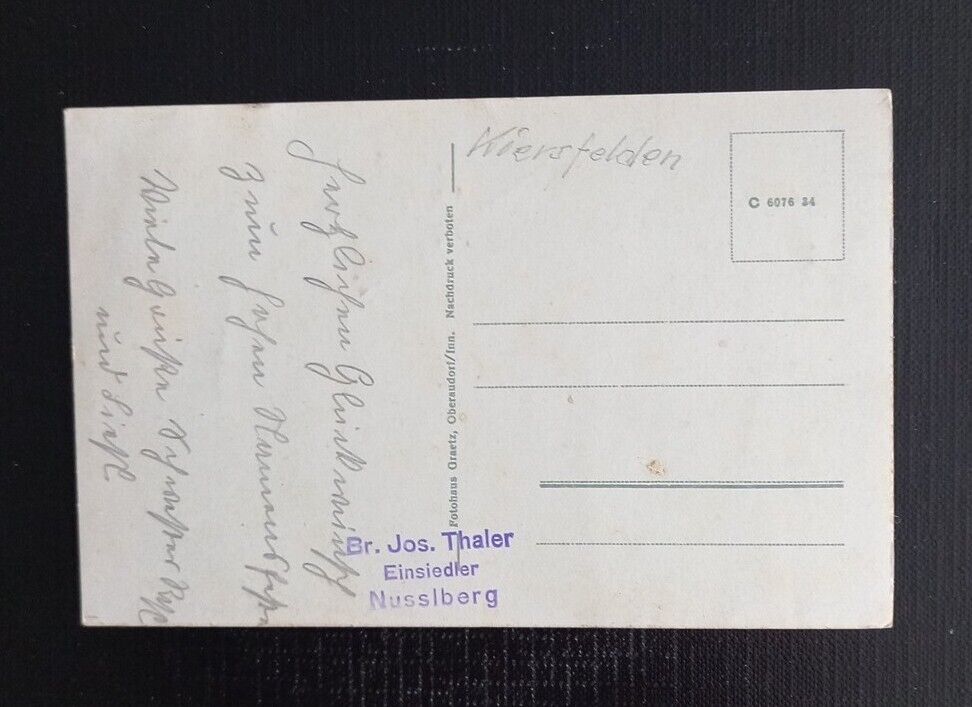 Herzlichen Glückwunsch
zum hohen Namensfeste
Viele Grüße Schwester
und
Kiersfelden
C 6076 34
Fotohaus Graetz, Oberaudorf/Inn. Nachdruck verboten
Br. Jos. Thaler
Einsiedler
Nusslberg